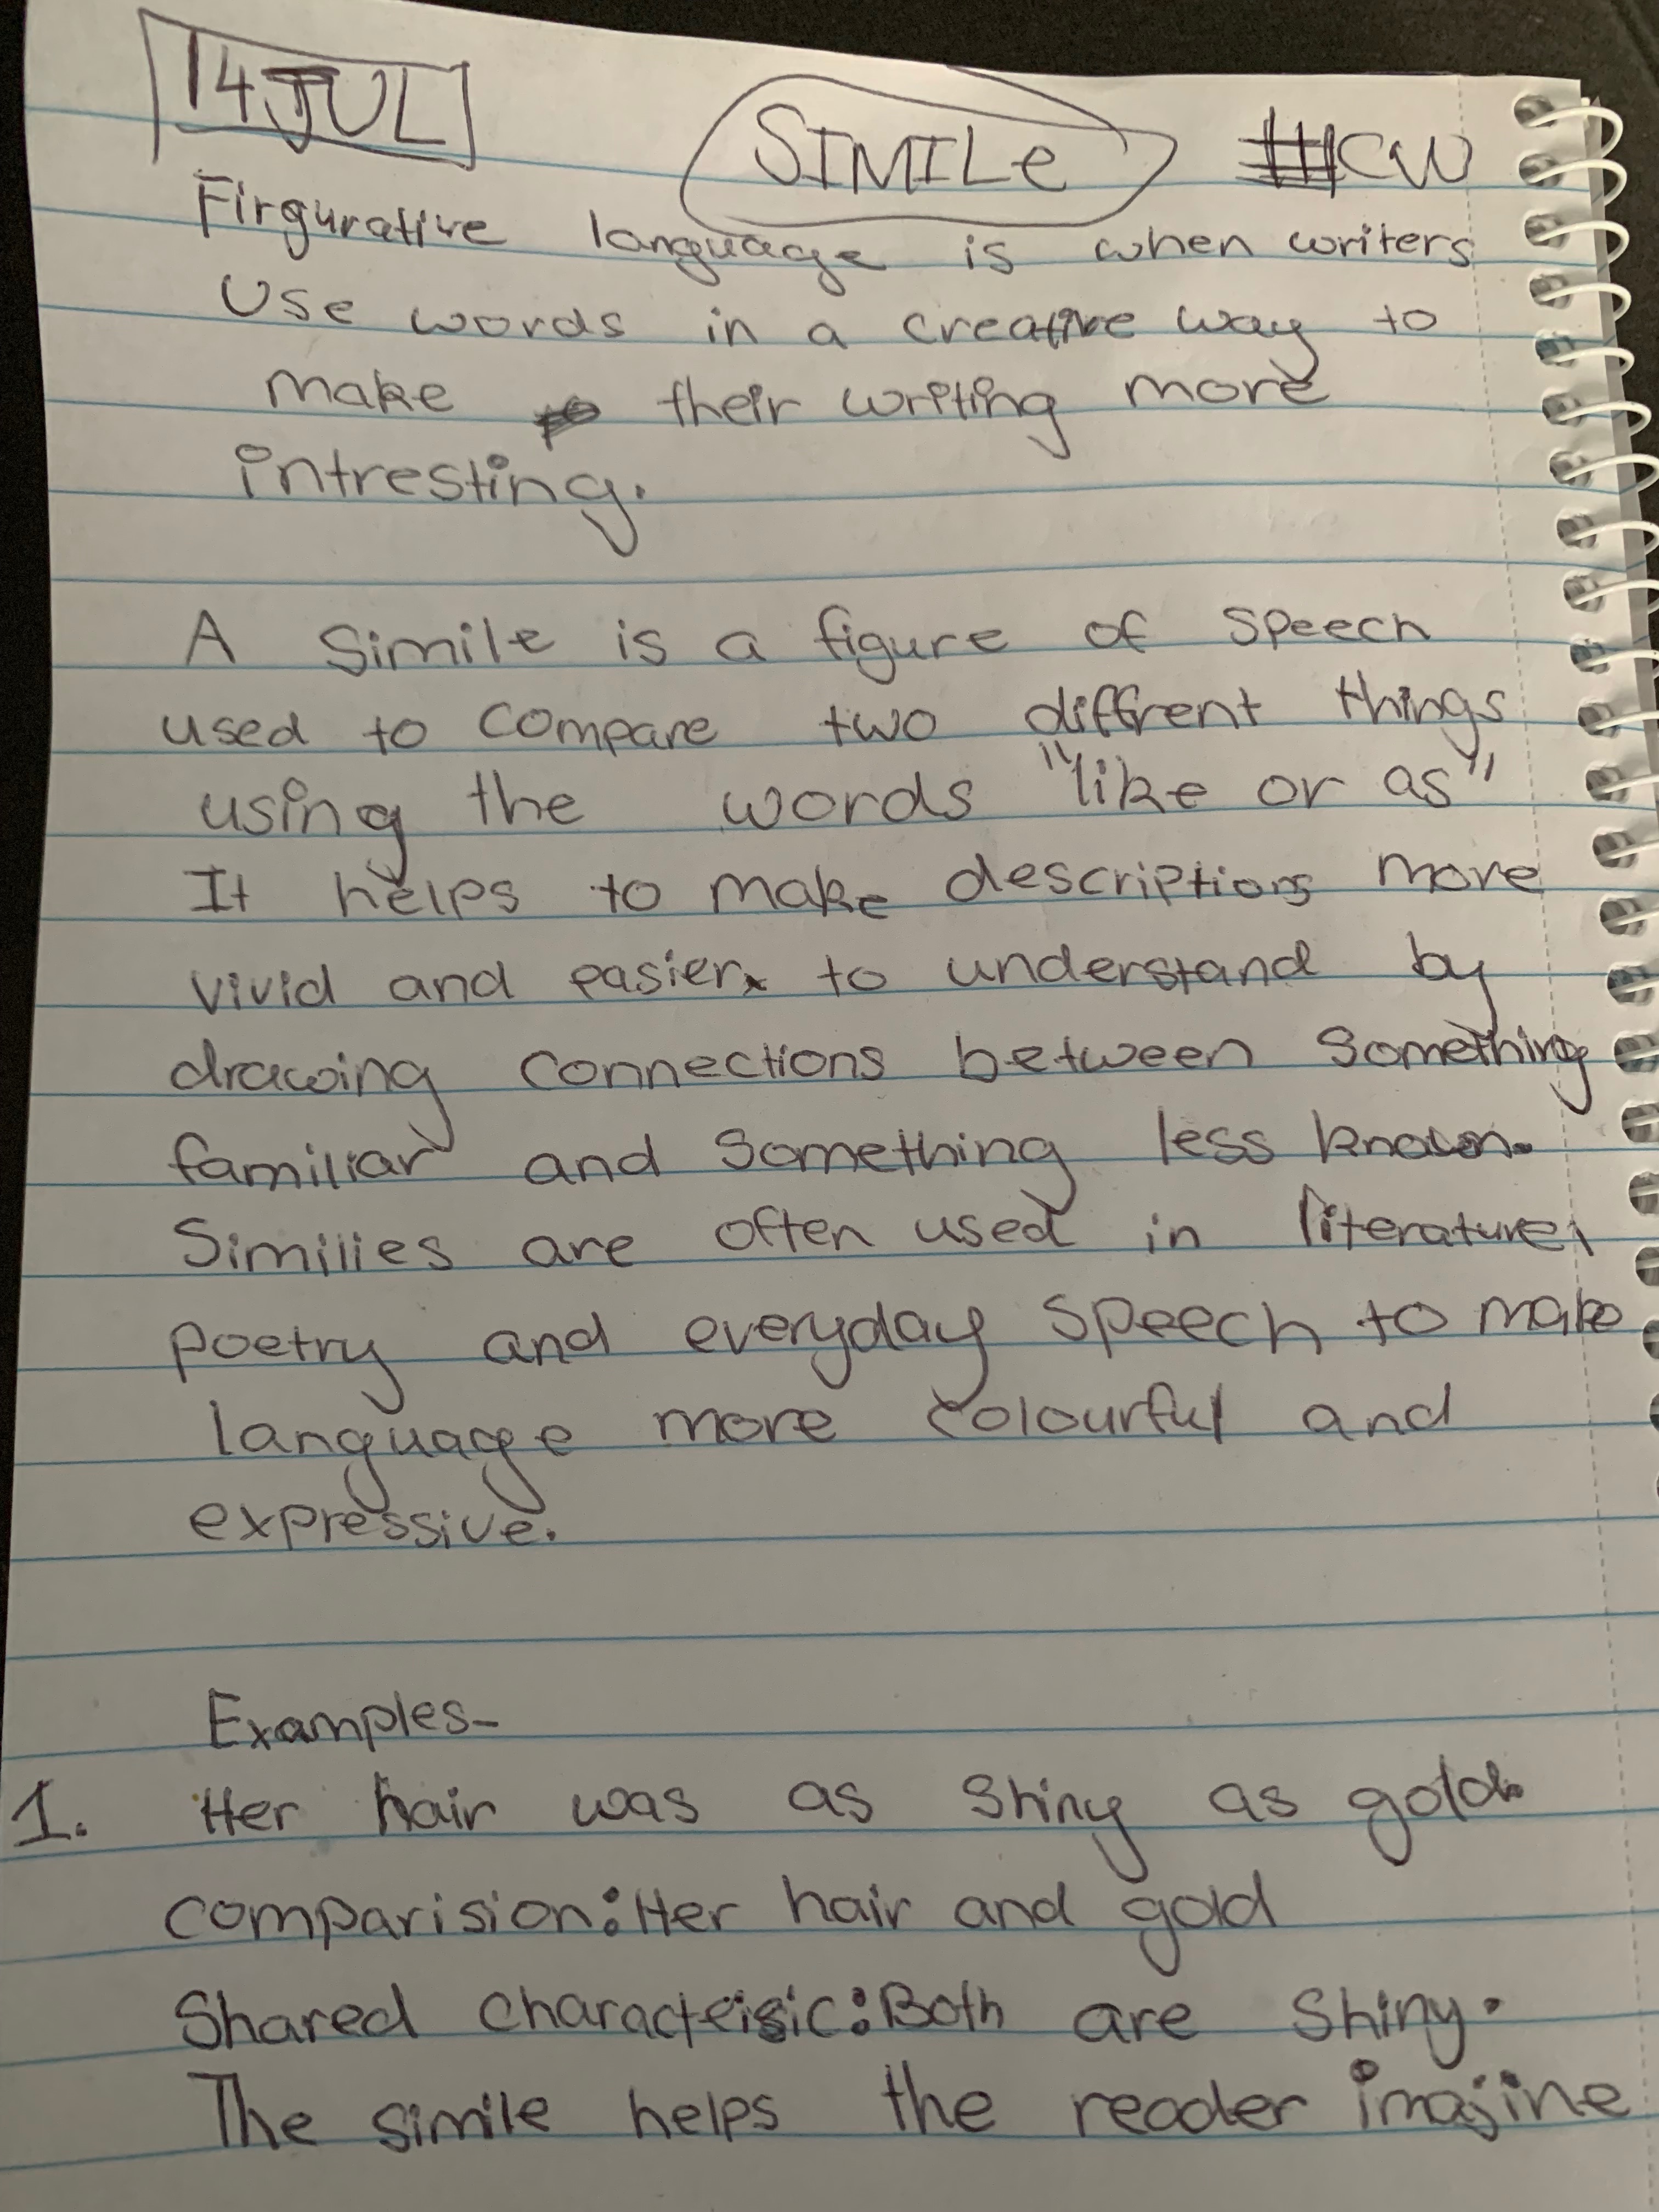 14 JUL
SIMILe #CW
Firgurative language is when writers
Use words in a creative way to
make their writing more
intresting.
A Simile is a figure of speech
used to compare two diffrent things
using the words "like or as"
It helps to make descriptions more
vivid and easier to understand by
drawing connections between something
familiar and something less known.
Similies are often used in literature,
poetry and everyday speech to make
language more colourful and
expressive.
Examples-
1. Her hair was as shiny as gold.
comparision: Her hair and gold
Shared characteisic: Both are shiny.
The simile helps the reader imajine